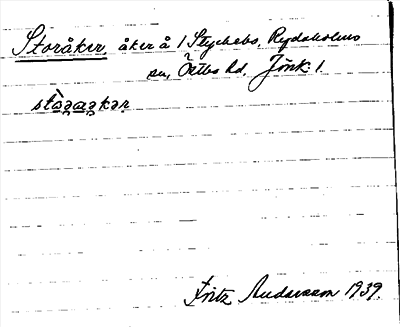 Storåker, åker å 1 Styckebo, Rydaholms
sn, Östbo hd, Jönk. l.
stòə̯raə̯kər
Fritz Andersson 1939.